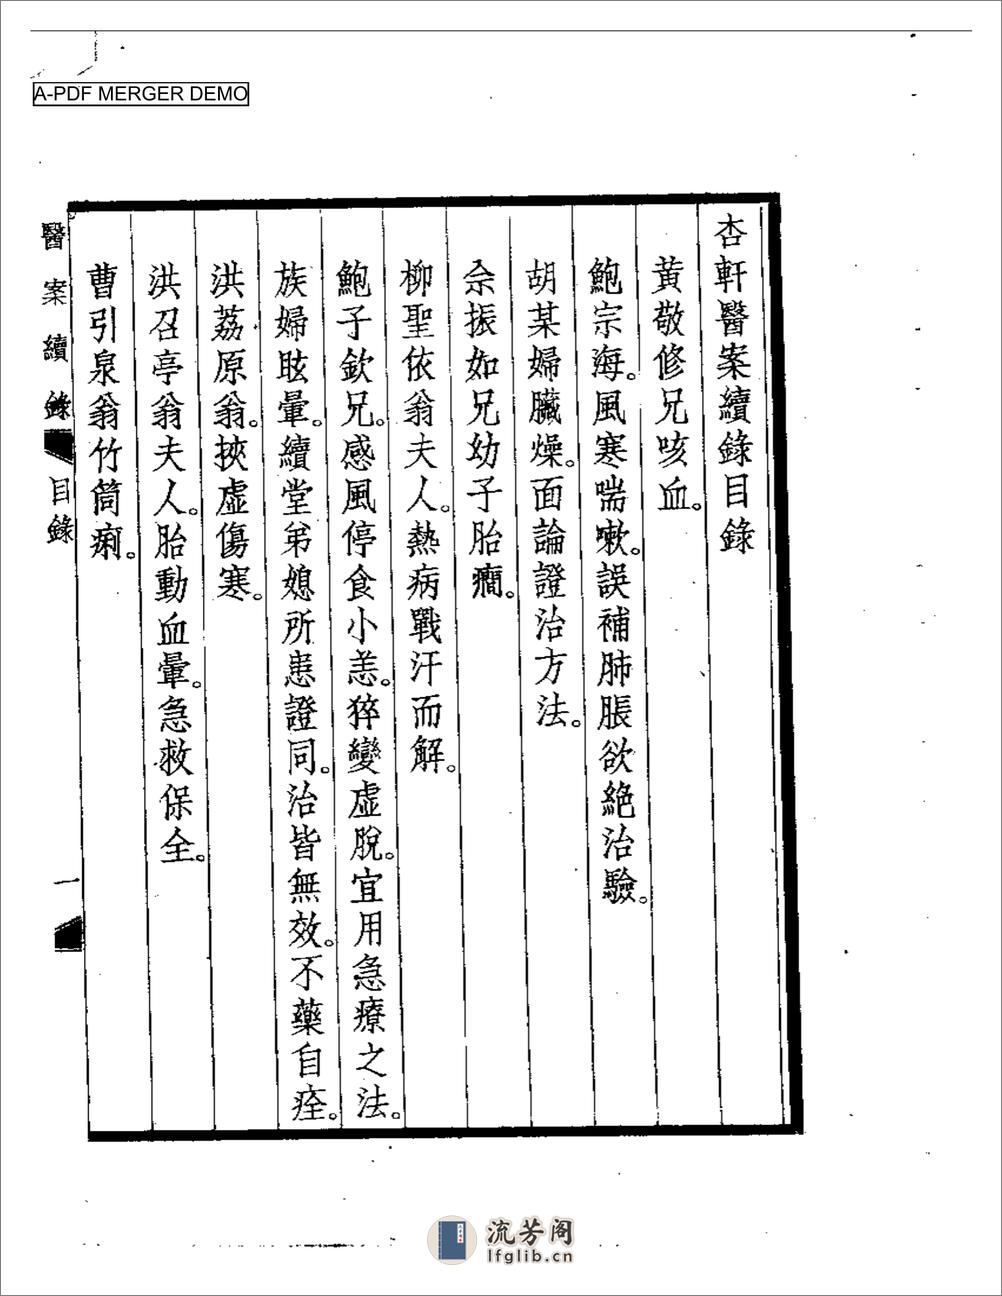 A-PDF MERGER DEMO
杏軒醫案續錄目錄
黃敬修兄咳血。
鮑宗海。風寒喘嗽。誤補肺脹欲絶治驗。
胡某婦臟燥。面論證治方法。
余振如兄幼子胎癎。
柳聖依翁夫人。熱病戰汗而解。
鮑子欽兄。感風停食小恙。猝變虛脫。宜用急療之法。
族婦眩暈。續堂弟媳所患證同。治皆無效。不藥自痊。
洪荔原翁。挾虛傷寒。
洪召亭翁夫人。胎動血暈。急救保全。
曹引泉翁竹筒痢。
醫案續錄 目錄 一
流芳阁
lfglib.cn